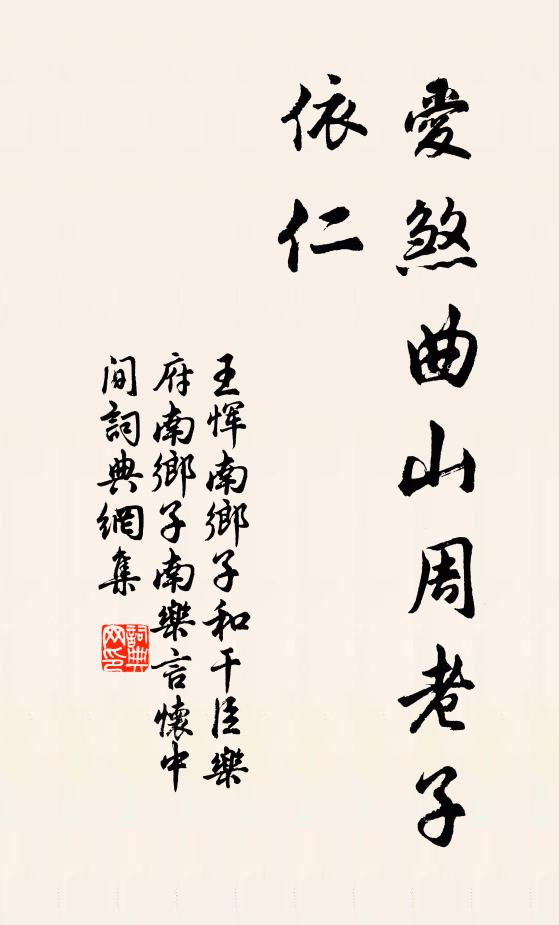 愛煞曲山周老子
依仁
王恽南鄉子和干臣樂
府南鄉子南樂言懷中
间詞典網集
詞典網印